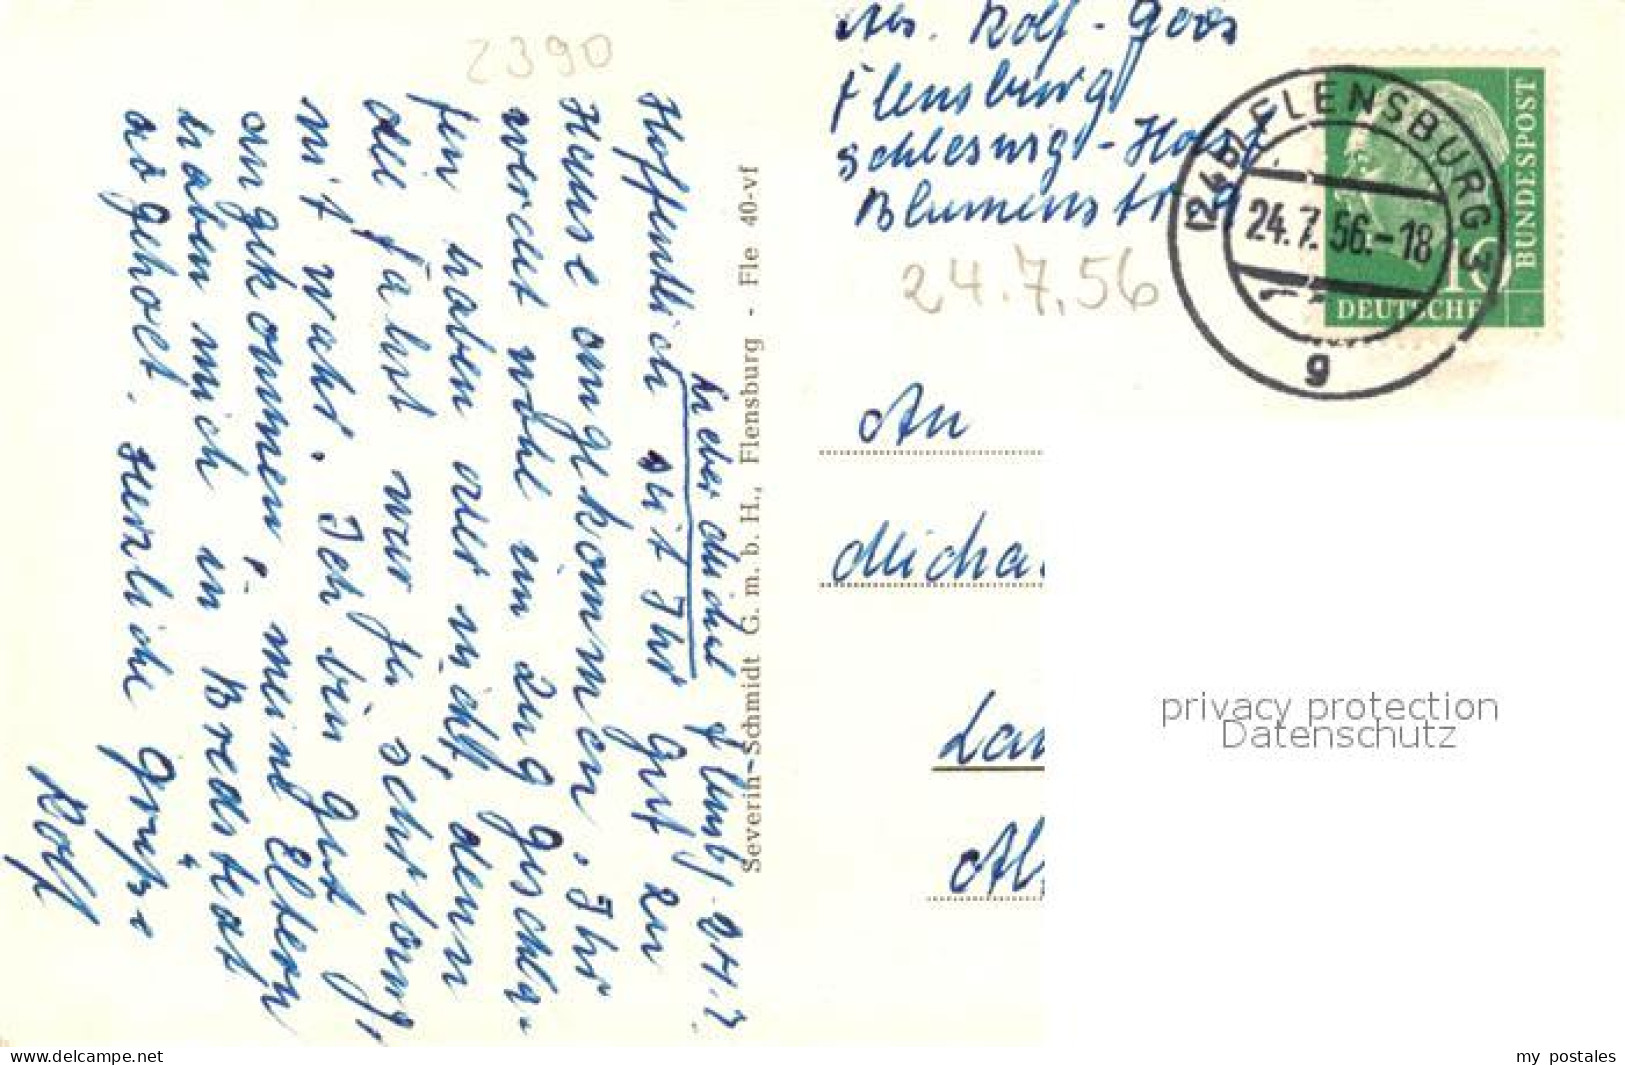 2390
Lieber Michael Flensbg. 24.7.
Hoffentlich seit Ihr gut zu
Hause angekommen. Ihr
werdet wohl im Zug geschla-
fen haben oder nicht, denn
die Fahrt war ja sehr lang,
nit wahr. Ich bin gut
angekommen, meine Eltern
haben mich in Bredstedt
abgeholt. Herzliche Grüße
Rolf
Severin-Schmidt G. m. b. H., Flensburg - Fle 40-vf
Abs. Rolf-Goos
Flensburg
Schleswig-Holst
Blumenstr.
24.7.56
(24b) FLENSBURG 3
24.7.56.-18
g
BUNDESPOST
10
DEUTSCHE
An
Micha
Lan
privacy protection
Datenschutz
www.delcampe.net
my_postales